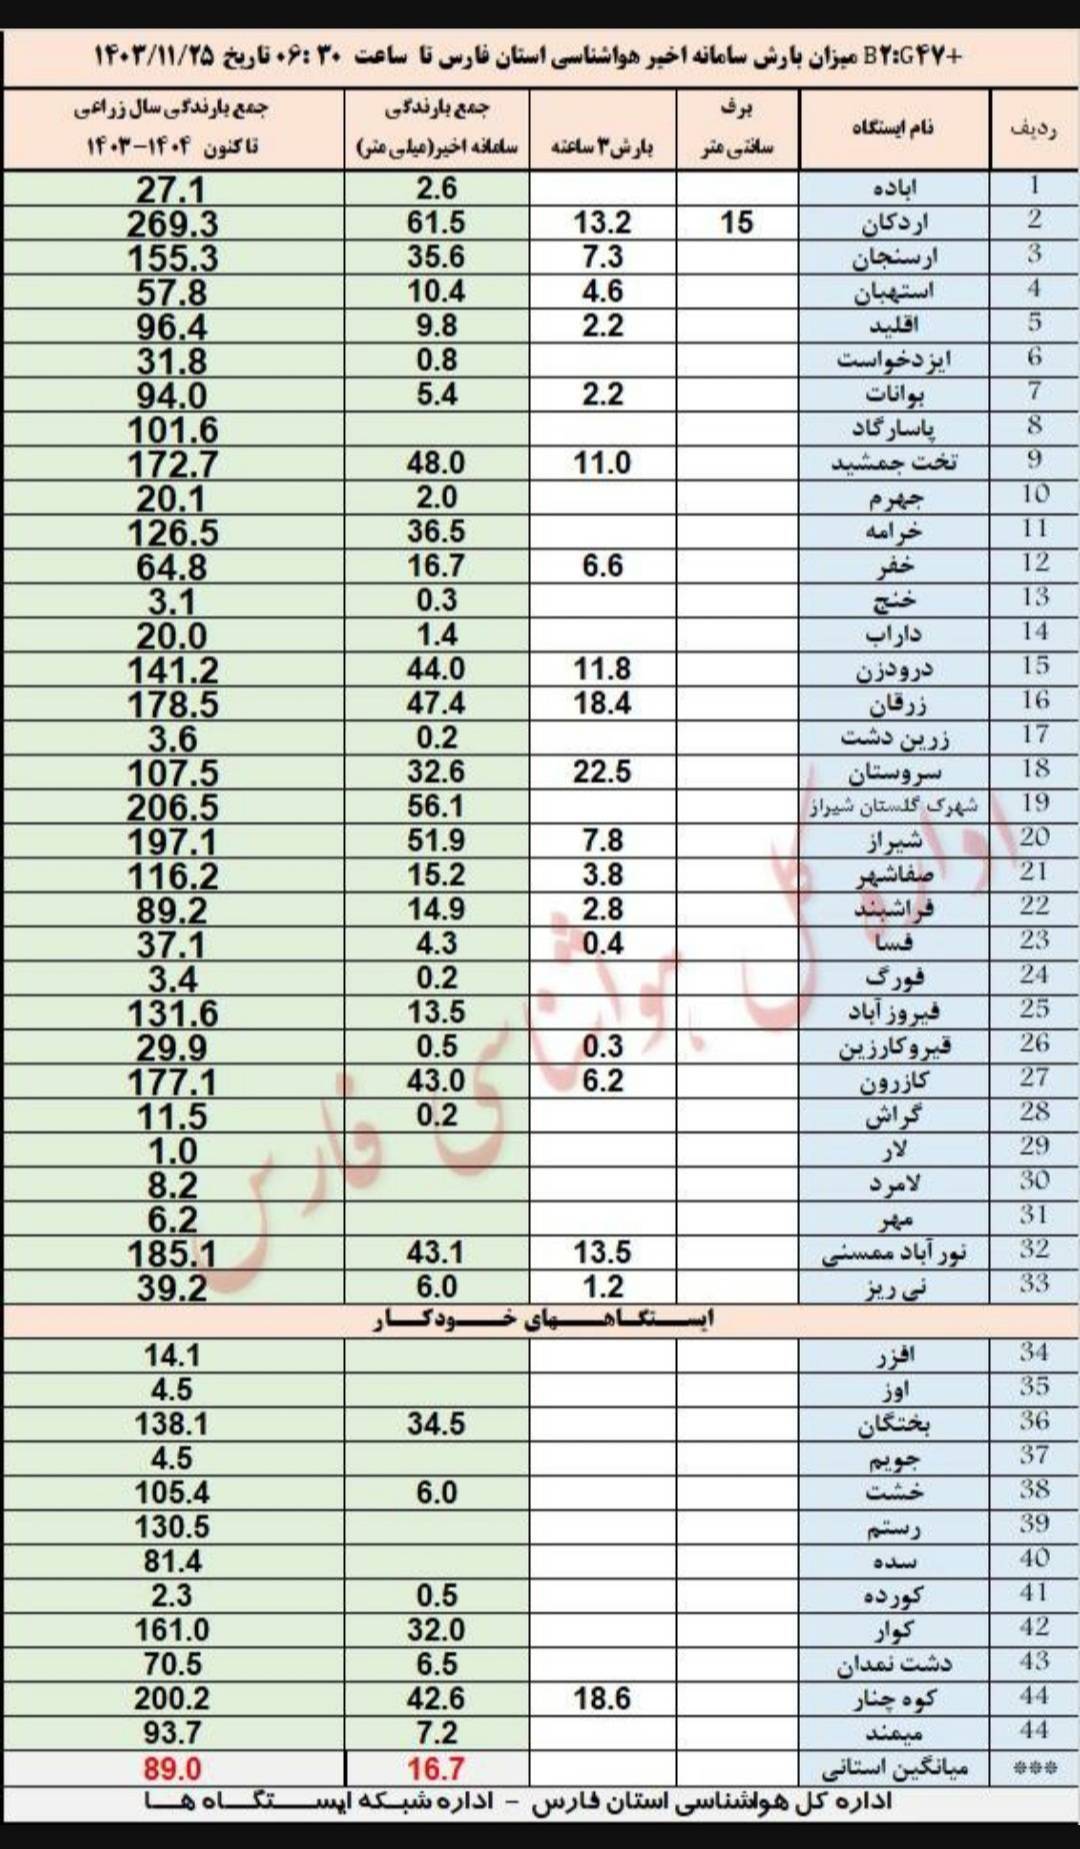 +B۲:G۴۷ میزان بارش سامانه اخیر هواشناسی استان فارس تا ساعت ۳۰ :۰۶ تاریخ ۱۴۰۳/۱۱/۲۵
ردیف نام ایستگاه برف سانتی متر بارش ۳ ساعته جمع بارندگی سامانه اخیر(میلی متر) جمع بارندگی سال زراعی تا کنون ۱۴۰۴-۱۴۰۳
1 اباده 2.6 27.1
2 اردکان 15 13.2 61.5 269.3
3 ارسنجان 7.3 35.6 155.3
4 استهبان 4.6 10.4 57.8
5 اقلید 2.2 9.8 96.4
6 ایزدخواست 0.8 31.8
7 بوانات 2.2 5.4 94.0
8 پاسارگاد 101.6
9 تخت جمشید 11.0 48.0 172.7
10 جهرم 2.0 20.1
11 خرامه 36.5 126.5
12 خفر 6.6 16.7 64.8
13 خنج 0.3 3.1
14 داراب 1.4 20.0
15 درودزن 11.8 44.0 141.2
16 زرقان 18.4 47.4 178.5
17 زرین دشت 0.2 3.6
18 سروستان 22.5 32.6 107.5
19 شهرک گلستان شیراز 56.1 206.5
20 شیراز 7.8 51.9 197.1
21 صفاشهر 3.8 15.2 116.2
22 فراشبند 2.8 14.9 89.2
23 فسا 0.4 4.3 37.1
24 فورگ 0.2 3.4
25 فیروزآباد 13.5 131.6
26 قیروکارزین 0.3 0.5 29.9
27 کازرون 6.2 43.0 177.1
28 گراش 0.2 11.5
29 لار 1.0
30 لامرد 8.2
31 مهر 6.2
32 نورآباد ممسنی 13.5 43.1 185.1
33 نی ریز 1.2 6.0 39.2
ایستگاههای خودکار
34 افزر 14.1
35 اوز 4.5
36 بختگان 34.5 138.1
37 جویم 4.5
38 خشت 6.0 105.4
39 رستم 130.5
40 سده 81.4
41 کورده 0.5 2.3
42 کوار 32.0 161.0
43 دشت نمدان 6.5 70.5
44 کوه چنار 18.6 42.6 200.2
44 میمند 7.2 93.7
*** میانگین استانی 16.7 89.0
اداره کل هواشناسی استان فارس - اداره شبکه ایستگاه ها
اداره کل هواشناسی فارس